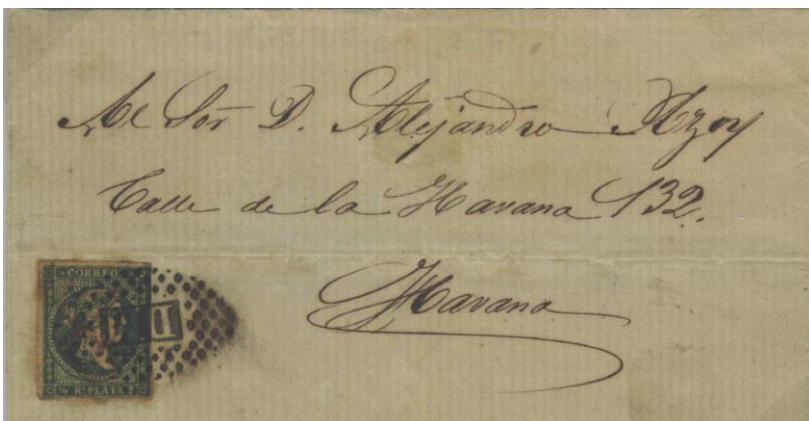 Al Sor. D. Alejandro Azoy
Calle de la Havana 132.
Havana
CORREO
½ Rl. PLATA F.